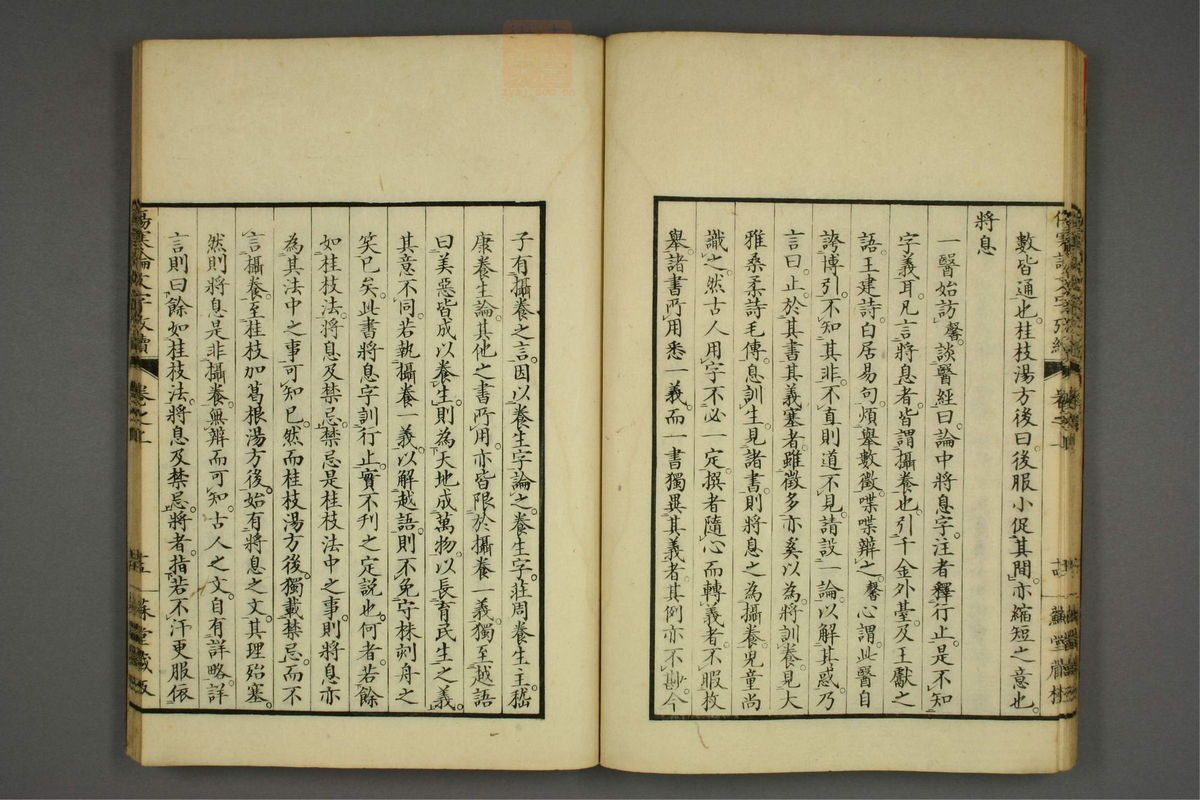 數皆通也。桂枝湯方後曰。後服小促其間。亦縮短之意也。
將息
一醫始訪馨。談醫經曰。論中將息字。注者釋行止。是不知
字義耳。凡言將息者。皆謂攝養也。引千金外臺。及王獻之
語。王建詩。白居易句。煩擧數徵。喋喋辯之。馨心謂。此醫自
誇博引。不知其非。不直則道不見。請設一論。以解其惑。乃
言曰。止於其書其義塞者。雖徵多亦奚以為。將訓養。見大
雅桑柔詩毛傳。息訓生。見諸書。則將息之為攝養。兒童尚
識之。然古人用字不必一定。撰者隨心而轉義者。不暇枚
擧。諸書所用悉一義。而一書獨異其義者。其例亦不尠。今
子有攝養之言。因以養生字論之。養生字。莊周養生主。嵇
康養生論。其他之書所用。亦皆限於攝養一義。獨至越語
曰美惡皆成以養生。則為天地成萬物。以長育民生之義。
其意不同。若執攝養一義。以解越語。則不免守株刻舟之
笑已矣。此書將息字訓行止。實不刊之定說也。何者。若餘
如桂枝法。將息及禁忌。禁忌是桂枝法中之事。則將息亦
為其法中之事可知已。然而桂枝湯方後。獨載禁忌。而不
言攝養。至桂枝加葛根湯方後。始有將息之文。其理殆塞。
然則將息是非攝養。無辨而可知。古人之文。自有詳略。詳
言則曰餘如桂枝法。將息及禁忌。將者。指若不汗更服依
傷寒論文字攷續